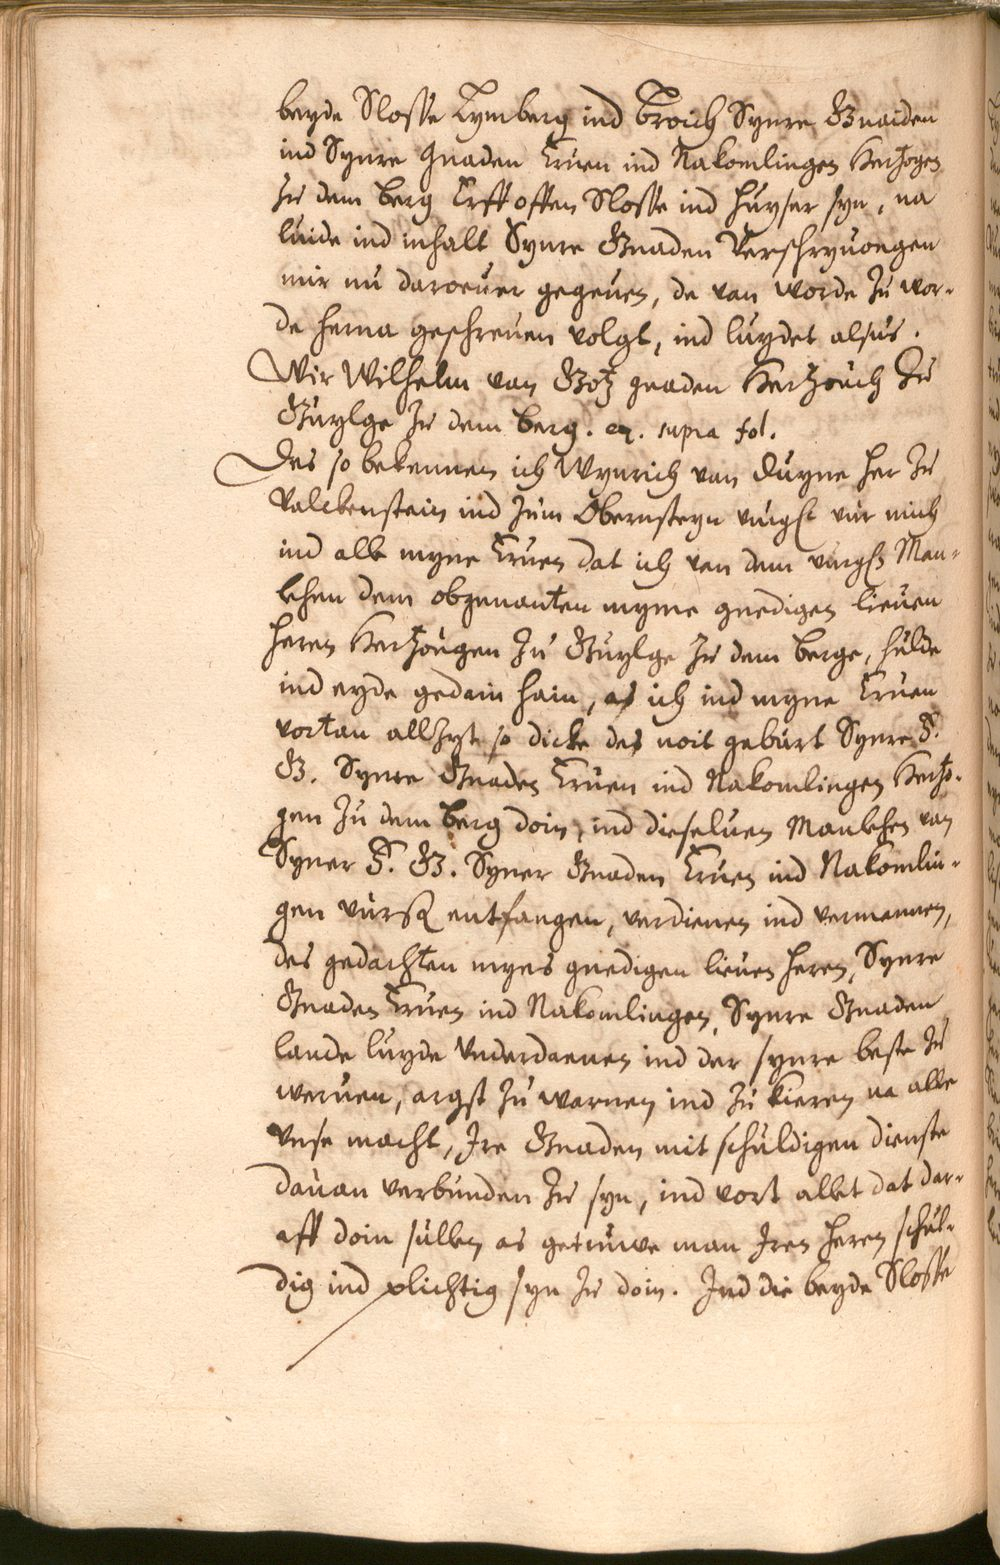 beyde Slosse Lymberg ind Broich Synre Gnaiden
ind Synre Gnaden Erven ind Nakomlingen Hertzogen
zu dem Berg Erff offen Slosse ind huyser syn, na
luide ind inhalt Synre Gnaden Verschryuongen
mir nu daroeuer gegeuen, de van worde zu wor-
de herna geschreuen volgt, ind luydet alsus.
Wir Wilhelm van Gotz gnaden Hertzouch zu
Guylge zu dem Berg. etc. supra fol.
Des so bekennen ich Wynrich van Duyne Her zu
Valckenstein ind zum Obernsteyn vurgß vur mich
ind alle myne Eruen dat ich van dem vurgß Man-
lehen dem obgenanten myme gnedigen lieuen
heren Hertzougen zu Guylge zu dem Berge, hulde
ind eyde gedain hain, as ich ind myne Eruen
vortan allzyt so dicke des noit geburt Synre F.
G. Synre Gnaden Eruen ind Nakomlingen Hertzo-
gen zu dem Berg doin, ind dieseluen Manlehen van
Syner F. G. Syner Gnaden Eruen ind Nakomlin-
gen vurß entfangen, verdienen ind vermannen,
des gedachten myns gnedigen lieuen heren, Synre
Gnaden Eruen ind Nakomlingen, Synre Gnaden
lande luyde vnderdaenen ind der synre beste zu
weruen, argst zu warnen, ind zu kieren na alle
vnse macht, Ire Gnaden mit schuldigen dienste
dauan verbunden zu syn, ind vort allet dat dar-
aff doin sullen as getruwe man Iren heren schul-
dig ind plichtig syn zu doin. Ind die beyde Slosse